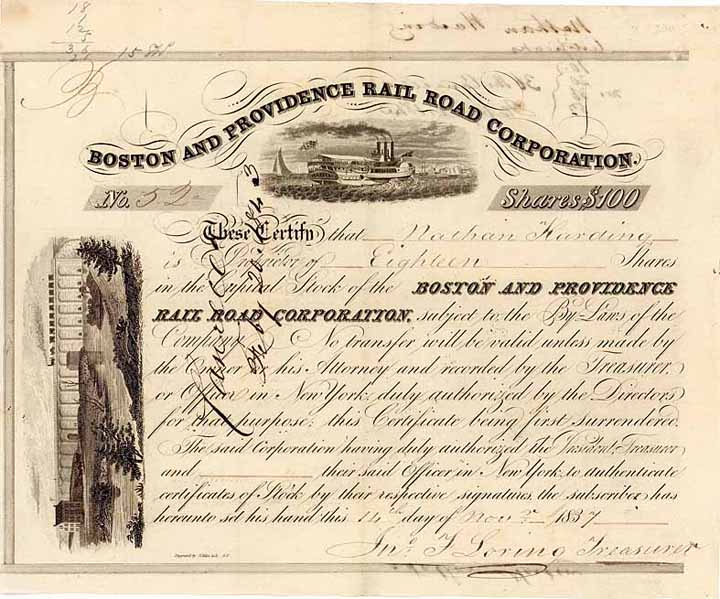 18
15
BOSTON AND PROVIDENCE RAIL ROAD CORPORATION.
No. 52
Shares $100
These Certify that Nathan Harding
is Proprietor of Eighteen Shares
in the Capital Stock of the BOSTON AND PROVIDENCE
RAIL ROAD CORPORATION, subject to the By-Laws of the
Company. No transfer will be valid unless made by
the Owner or his Attorney and recorded by the Treasurer
or Officer in New York duly authorized by the Directors
for that purpose; this Certificate being first surrendered.
The said Corporation having duly authorized the President, Treasurer
and their said Officer in New York to authenticate
certificates of Stock by their respective signatures, the subscriber has
hereunto set his hand this 14th day of Nov. 1837
Jno. F Loring Treasurer
Cancelled
Feby 20. 1843